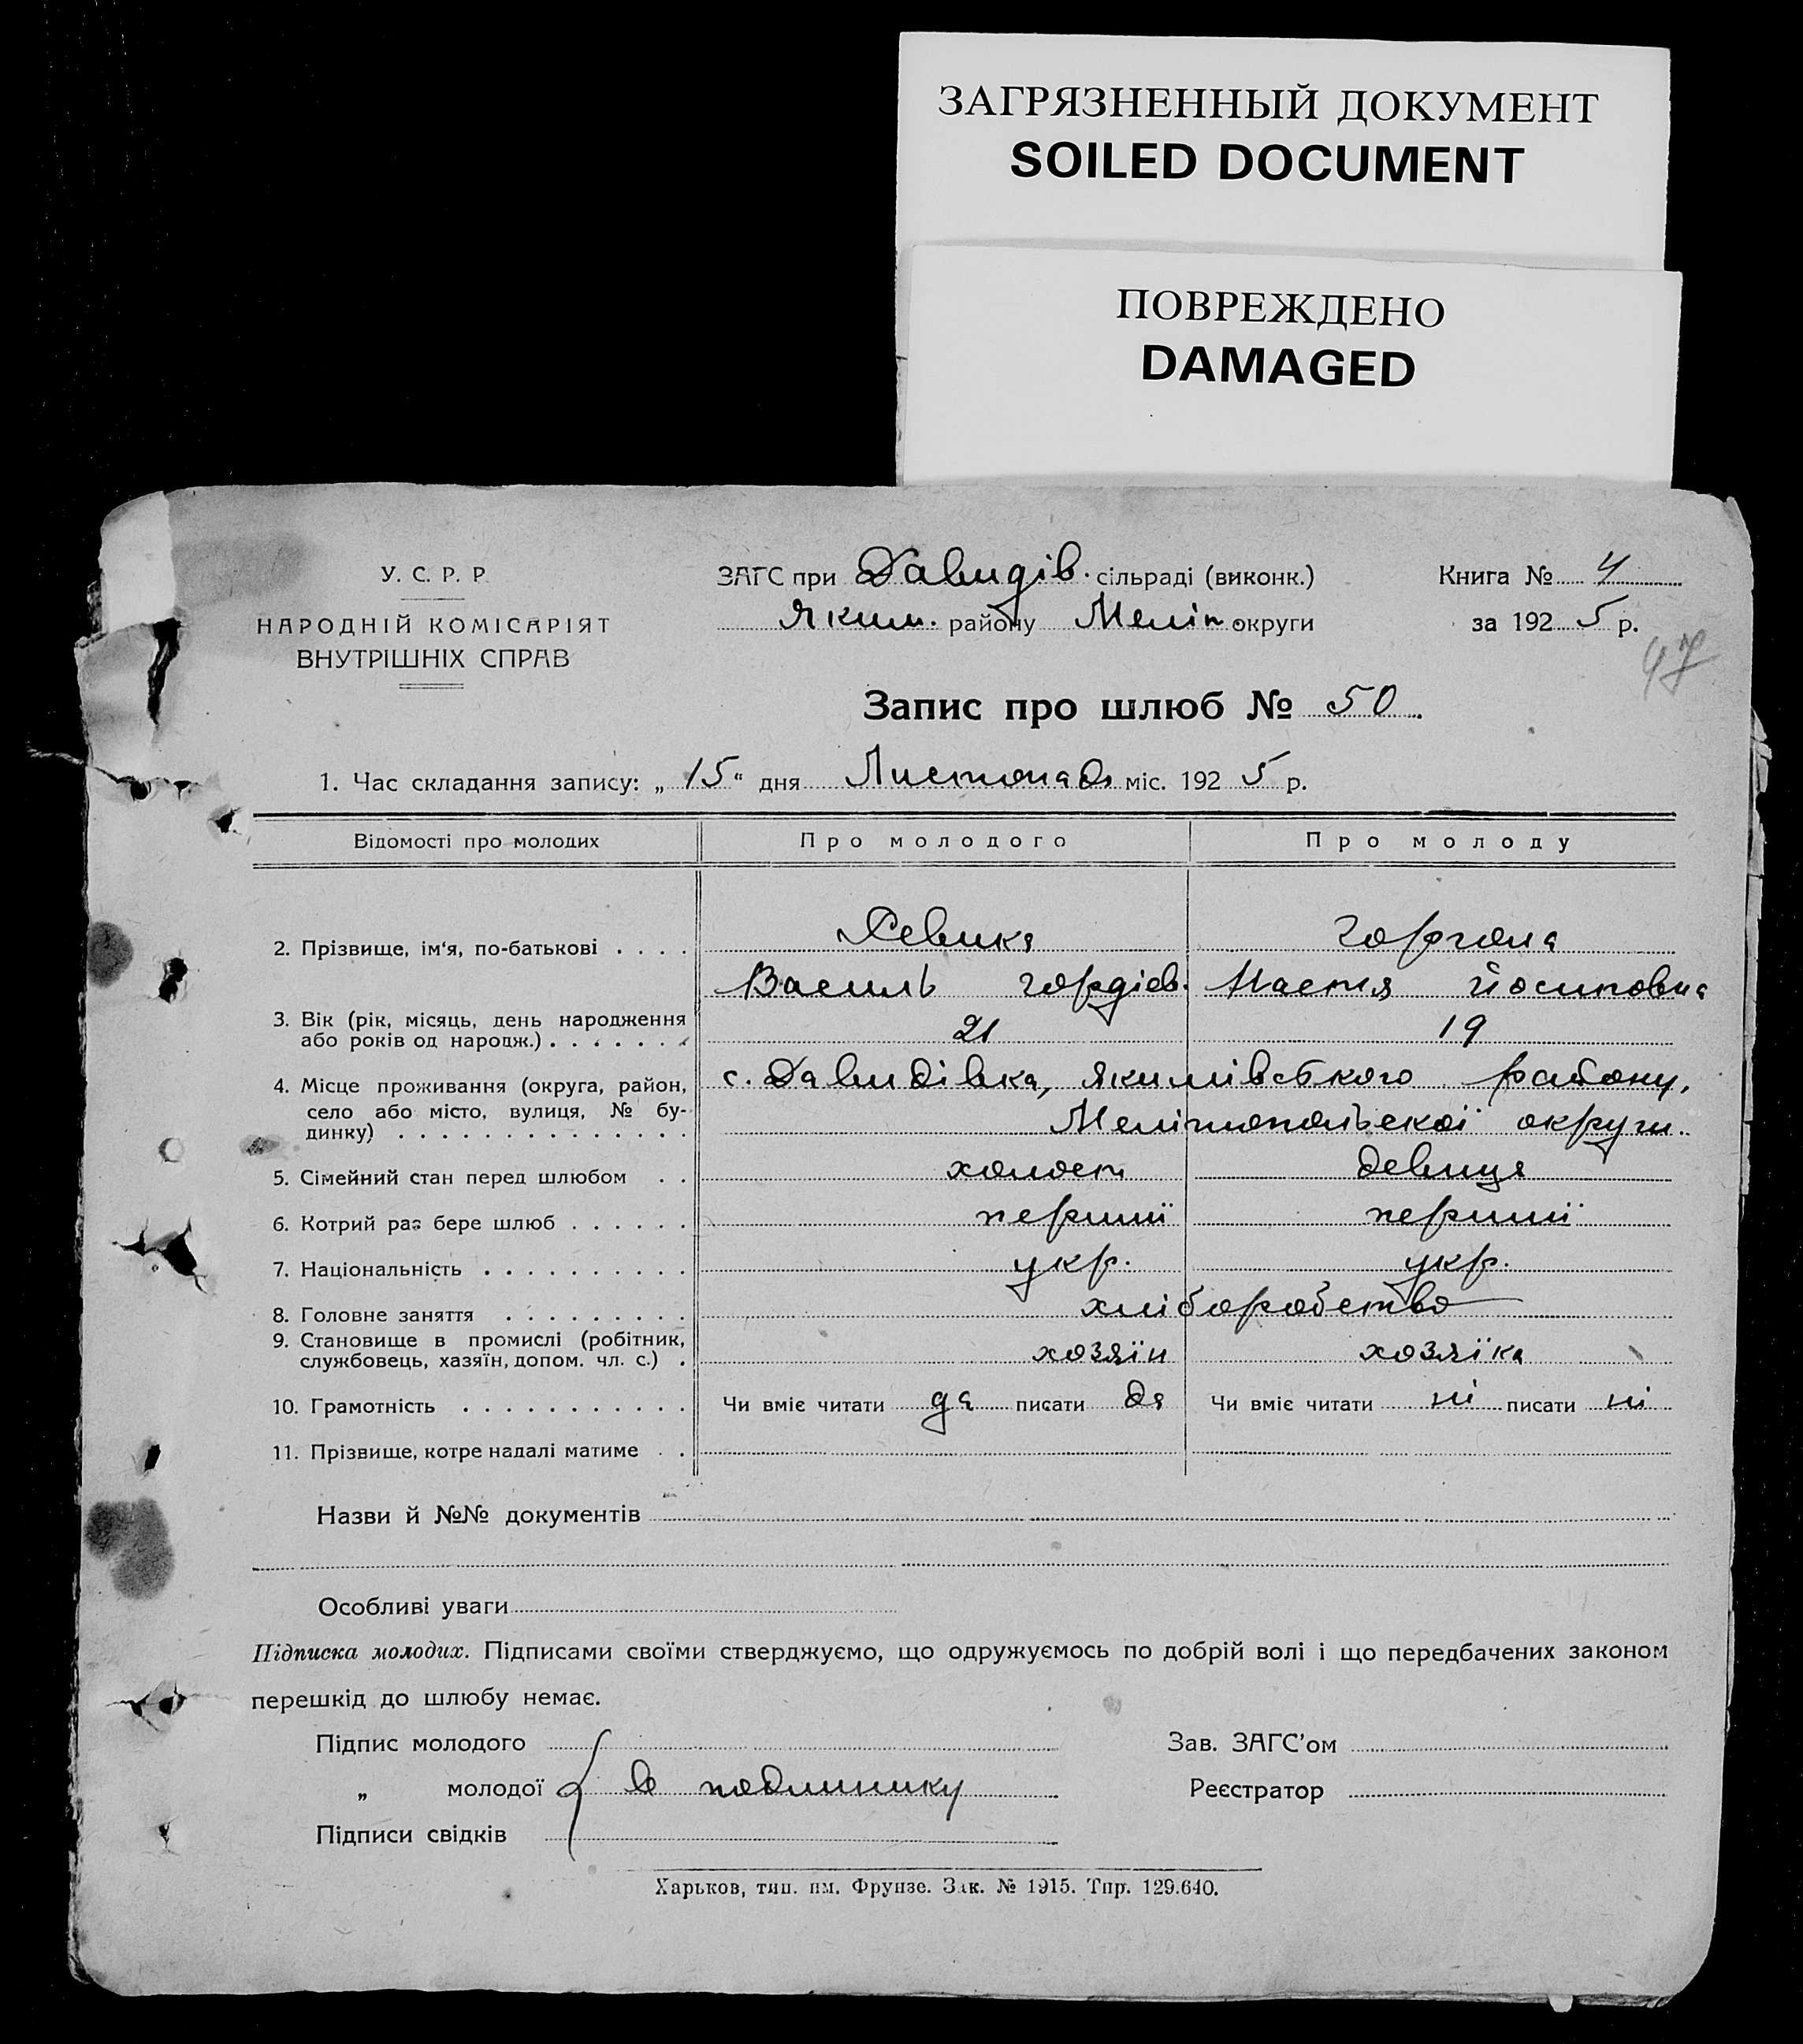 ЗАГРЯЗНЕННЫЙ ДОКУМЕНТ
SOILED DOCUMENT
ПОВРЕЖДЕНО
DAMAGED
У. С. Р. Р
НАРОДНІЙ КОМІСАРІЯТ
ВНУТРІШНІХ СПРАВ
ЗАГС при Давидів. сільраді (виконк.)
Яким. району Меліт. округи
Книга № 4
за 1925 р.
47
Запис про шлюб № 50
1. Час складання запису: „15“ дня Листопада міс. 1925 р.
Відомості про молодих Про молодого Про молоду
2. Прізвище, ім‘я, по-батькові . . . . Горгола
Василь Гордіев. Настя Йосиповна
3. Вік (рік, місяць, день народження
або років од народж.) . . . . . . . 21 19
4. Місце проживання (округа, район, с. Давидівка, Якимівського району,
село або місто, вулиця, № бу-
динку) . . . . . . . . . . . . . . Мелітопольскої округи.
5. Сімейний стан перед шлюбом . . холост девиця
6. Котрий раз бере шлюб . . . . . . перший перший
7. Національність . . . . . . . . . . укр. укр.
8. Головне заняття . . . . . . . . . хліборобство
9. Становище в промислі (робітник,
службовець, хазяїн, допом. чл. с.) . хозяїн хозяїка
10. Грамотність . . . . . . . . . . . Чи вміє читати да писати да Чи вміє читати ні писати ні
11. Прізвище, котре надалі матиме . .
Назви й №№ документів
Особливі уваги
Підписка молодих. Підписами своїми стверджуємо, що одружуємось по добрій волі і що передбачених законом
перешкід до шлюбу немає.
Підпис молодого
„ молодої в подлинику
Підписи свідків
Зав. ЗАГС’ом
Реєстратор
Харьков, тип. им. Фрунзе. Зак. № 1915. Тир. 129.640.